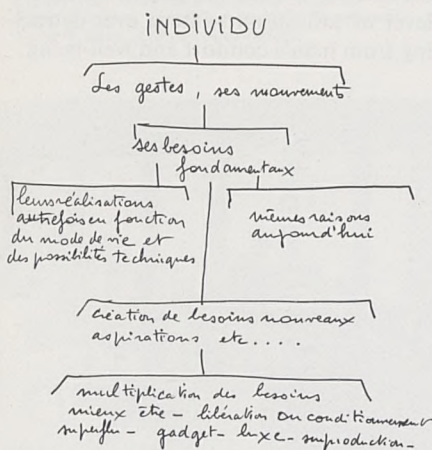 INDIVIDU
Les gestes, ses mouvements
ses besoins
fondamentaux
leurs réalisations
autrefois en fonction
du mode de vie et
des possibilités techniques
mêmes raisons
aujourd'hui
création de besoins nouveaux
aspirations etc....
multiplication des besoins
mieux être - libération ou conditionnement
superflu - gadget - luxe - surproduction -